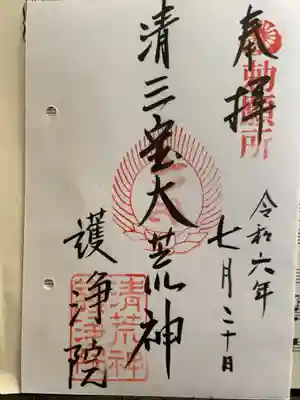 奉拝
勅願所
令和六年
七月二十日
清三宝大荒神
護浄院
清荒神